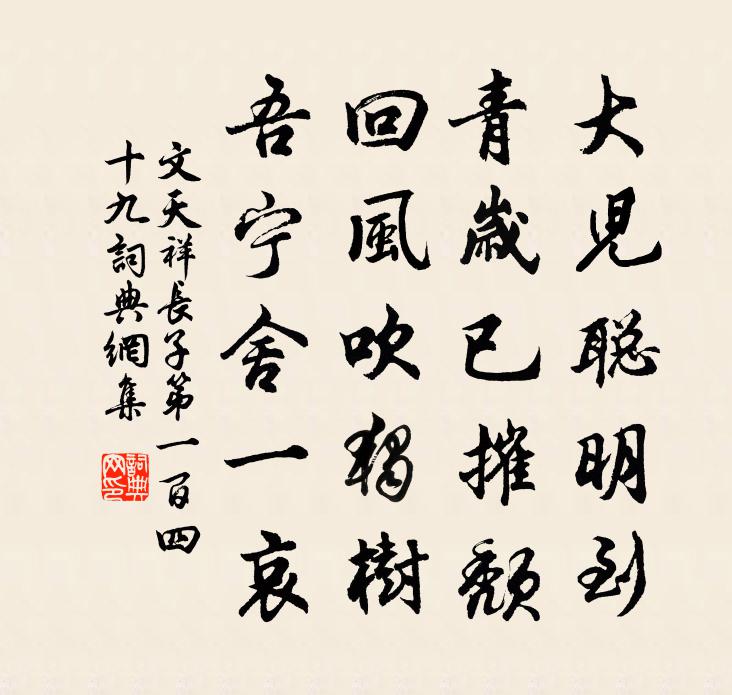 大児聡明到
青歲已摧頹
回風吹獨樹
吾宁舍一哀
文天祥長子第一百四
十九詞典網集
詞典網印